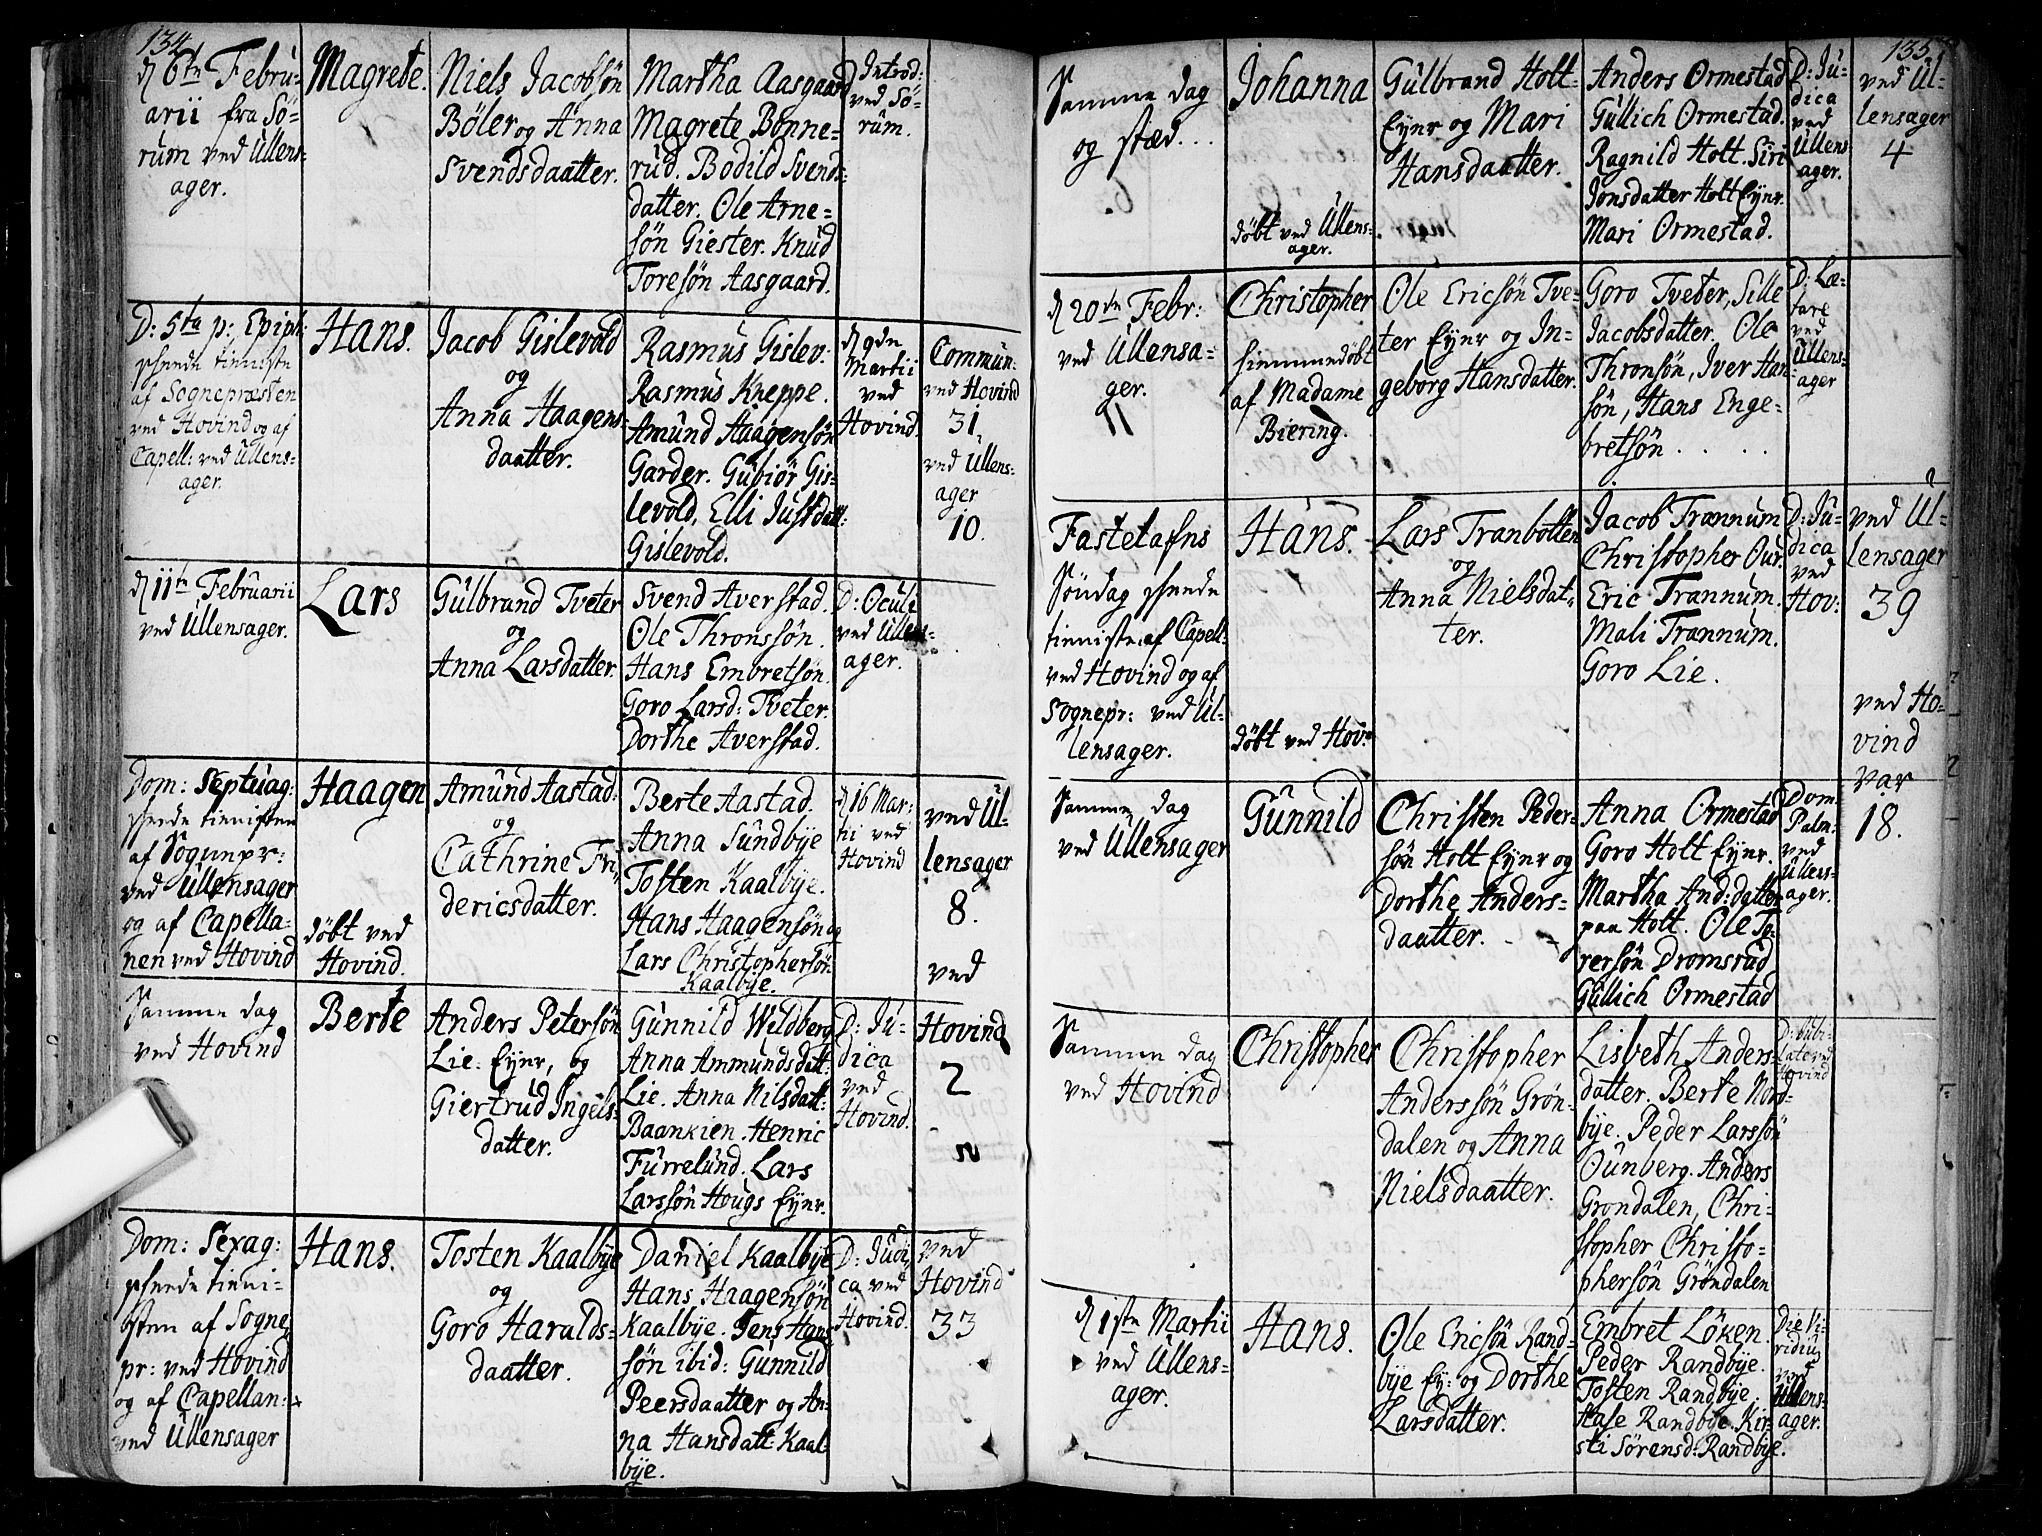 134
d 6te Febru-
arii fra Sö-
rum ved Ullens-
ager.
Magrete.
Niels Jacobsön
Böler og Anna
Svendsdaatter.
Martha Aasgaard
Magrete Bonne-
rud. Bodild Svends-
datter. Ole Arne-
søn Giester. Knud
Toresøn Aasgaard.
Introd:
ved Sö-
rum.
D: 5ta p: Epiph:
tienniste
af Sognepræsten
ved Hovind og af
Capell: ved Ullens-
ager.
Hans.
Jacob Gislevold
og
Anna Haagens-
daatter.
Rasmus Gislev:
Rasmus Kneppe.
Amund Haagensön
Garder. Gubiör Gis-
levold, Elli Justdatt:
Gislevold.
d 9de
Martii
ved
Hovind.
Commun:
ved Hovind
31,
ved Ullens-
ager
10.
d 11te Februarii
ved Ullensager.
Lars
Gulbrand Tveter
og
Anna Larsdatter.
Svend Averstad.
Ole Thronssøn.
Hans Embretsøn.
Goro Larsd: Tveter.
Dorthe Averstad.
D: Oculi
ved Ullens-
ager.
Dom: Septuag:
tiennisten
af Sognepr:
ved Ullensager
og af Capella-
nen ved Hovind
Haagen
döbt ved
Hovind.
Amund Aastad.
og
Cathrine Fri-
dericsdatter.
Berte Aastad.
Anna Sundbye
Tosten Kaalbye.
Hans Haagensøn og
Lars Christophersøn
Kaalbye.
d 16 Mar-
tii ved
Hovind
ved Ul-
lensager
8.
ved
Samme dag
ved Hovind
Berte
Anders Petersøn
Lie. Eynr, og
Giertrud Ingels-
datter.
Gunnild Wildberg
Anna Ammundsdatt:
Lie. Anna Nilsdatt:
Baankien. Henric
Furrelund. Lars
Larssøn Hougs Eynr.
D: Ju-
dica
ved
Hovind.
Hovind
2
Dom: Sexag:
tienni-
sten af Sogne-
pr: ved Hovind
og af Capellan:
ved Ullensager
Hans.
Tosten Kaalbye
og
Goro Haralds-
daatter.
Daniel Kaalbye
Hans Haagensøn
Kaalbye. Jens Hans
søn ibid: Gunnild
Peersdaatter og An-
na Hansdatt: Kaal-
bye.
D: Judi-
ca ved
Hovind.
ved
Hovind
33
135
Samme dag
og stæd...
Johanna
döbt ved Ullens-
ager.
Gulbrand Holt-
Eynr og Mari
Hansdaatter.
Anders Ormestad
Gullich Ormestad.
Ragnild Holt. Siri
Jonsdatter Holt Eynr.
Mari Ormestad.
D: Ju-
dica
ved
Ullens
ager.
ved Ul-
lensager
4
d 20de Febr:
ved Ullensa-
ger.
Christopher
hiemmedöbt
af Madame
Biering.
Ole Ericsøn Tve-
ter Eynr og In-
geborg Hansdatter.
Goro Tveter, Sille
Jacobsdatter. Ole
Thronsøn, Iver Han-
søn, Hans Enge-
bretsøn . . . .
D: Læ-
tare
ved
Ullens-
ager
Fastelafns
Söndag
tienniste af Capell:
ved Hovind og af
Sognepr: ved Ul-
lensager.
Hans.
döbt ved Hov:
Lars Tranbotten
og
Anna Nielsdat-
ter.
Jacob Trannum
Christopher Our.
Eric Trannum.
Mali Trannum.
Goro Lie.
D: Ju-
dica
ved
Hov:
ved Ul-
lensager
39
ved Ho-
vind
var
18.
Samme dag
ved Ullensager
Gunnild
Christen Peder-
søn Holt Eynr og
Dorthe Anders-
daatter.
Anna Ormestad
Goro Holt Eynr.
Martha And: datter
paa Holt. Ole To-
rersøn Dromsrud
Gullich Ormestad
Dom.
Palm:
ved
Ullens-
ager.
Samme dag
ved Hovind
Christopher
Christopher
Anderssøn Grøn-
dalen og Anna
Nielsdaatter.
Lisbeth Anders-
datter. Berte Nord-
bye. Peder Larssøn
Ounberg. Anders
Grondalen, Chri-
stopher Christo-
phersøn Grøndalen
D: Jubi-
late ved
Hovind
d 1ste Martii
ved Ullens-
ager.
Hans.
Ole Ericsøn Rand-
bye Ey: og Dorthe
Larsdatter.
Embret Löken.
Peder Randbye.
Tosten Randbye.
Aase Randbye. Kir-
sti Sörensd: Randbye.
Die Vi-
ridium
ved
Ullens-
ager.